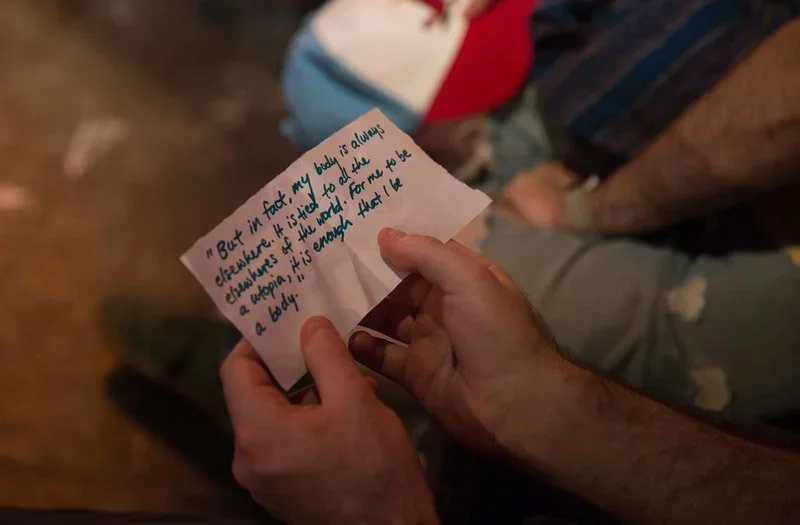 "But in fact, my body is always
elsewhere. It is tied to all the
elsewheres of the world. For me to be
a utopia, it is enough that I be
a body."